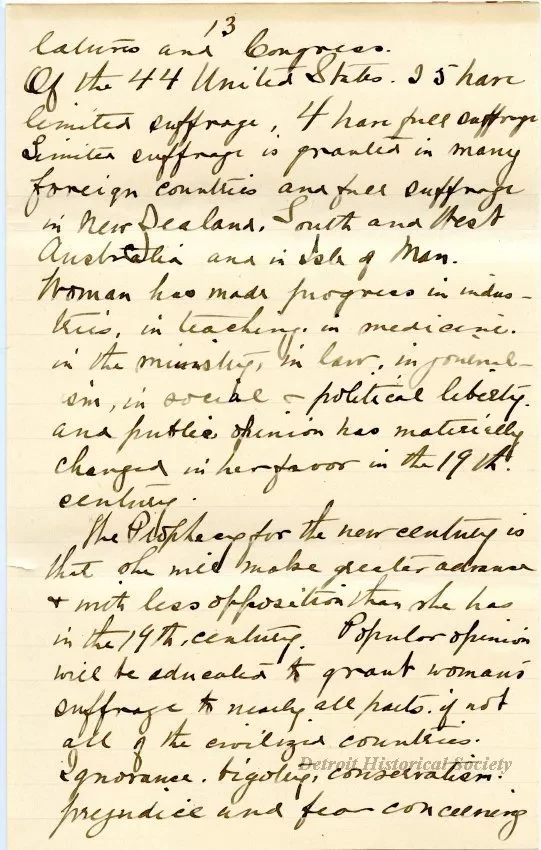 13
latures and Congress.
Of the 44 United States. 25 have
limited suffrage, 4 have full suffrage
Limited suffrage is granted in many
foreign countries and full suffrage
in New Zealand, South and West
Australia and in Isle of Man.
Woman has made progress in indus-
tries, in teaching, in medicine.
in the ministry, in law, in journal-
ism, in social & political liberty.
and public opinion has materially
changed in her favor in the 19th.
century.
The Prophecy for the new century is
that she will make greater advance
& with less opposition than she has
in the 19th. century. Popular opinion
will be educated to grant woman's
suffrage to nearly all parts, if not
all of the civilized countries.
Ignorance, bigotry, conservatism.
prejudice and fear concerning
Detroit Historical Society